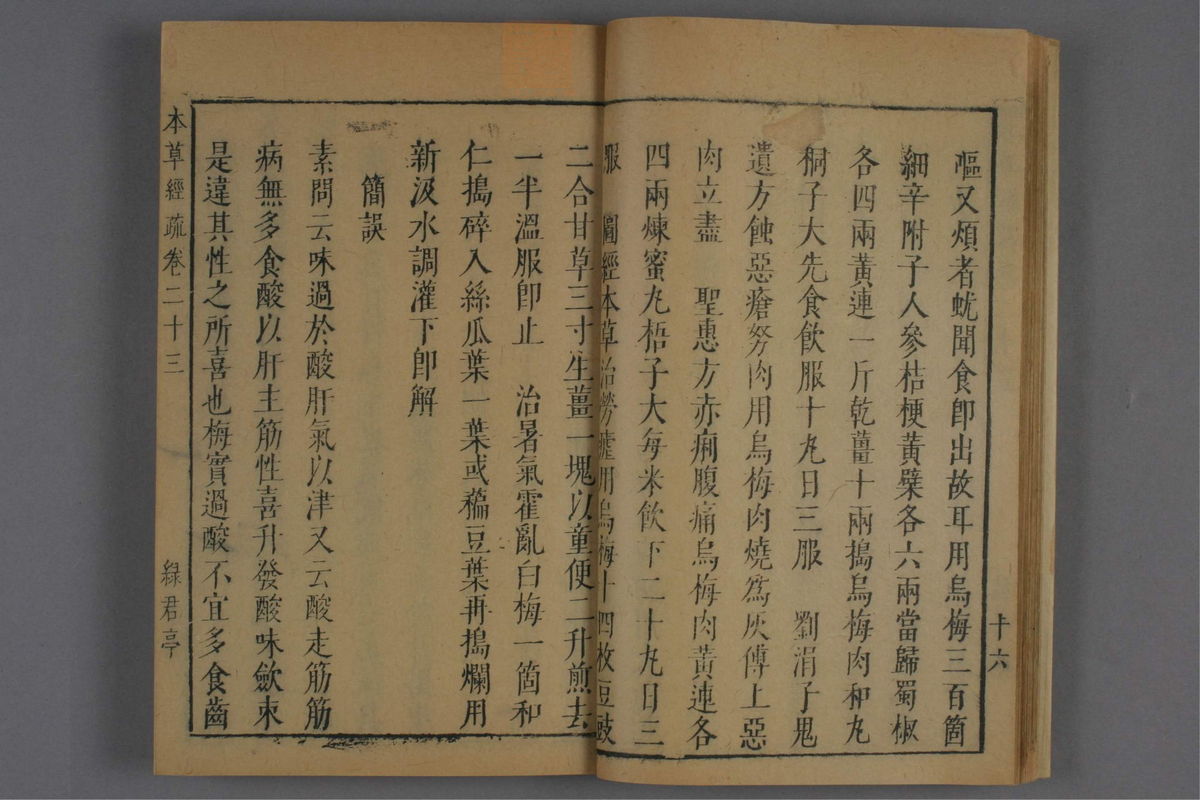 嘔又煩者蚘聞食卽出故耳用烏梅三百箇
細辛附子人參桂枝黃檗各六兩當歸蜀椒
各四兩黃連一斤乾薑十兩搗烏梅肉和丸
桐子大先食飮服十丸日三服　劉涓子鬼
遺方蝕惡瘡努肉用烏梅肉燒爲灰傅上惡
肉立盡　聖惠方赤痢腹痛烏梅肉黃連各
四兩煉蜜丸梧子大每米飮下二十丸日三
服　圖經本草治勞瘧用烏梅十四枚豆豉
二合甘草三寸生薑一塊以童便二升煎去
一半溫服卽止　治暑氣霍亂白梅一箇和
仁搗碎入絲瓜葉一葉或藊豆葉再搗爛用
新汲水調灌下卽解
簡誤
素問云味過於酸肝氣以津又云酸走筋筋
病無多食酸以肝主筋性喜升發酸味斂束
是違其性之所喜也梅實過酸不宜多食齒
十六
本草經疏卷二十三
綠君亭